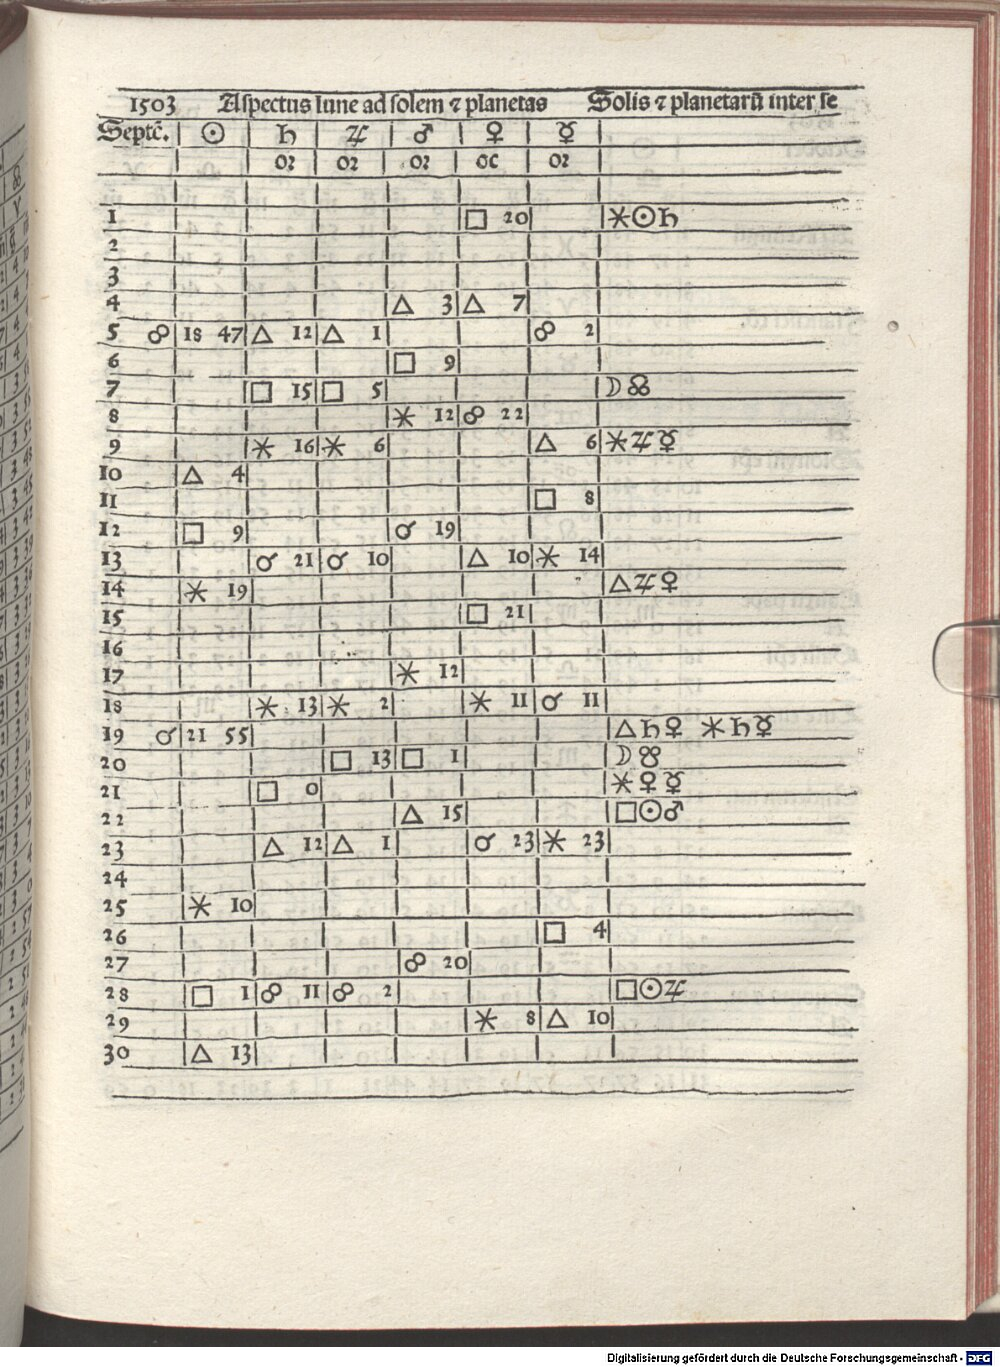 1503 Aspectus lune ad solem ⁊ planetas Solis ⁊ planetarū inter se
Septē. ☉ ♄ ♃ ♂ ♀ ☿
oꝛ oꝛ oꝛ oc oꝛ
1 □ 20 ⚹☉♄
2
3
4 △ 3 △ 7
5 ☍ 18 47 △ 12 △ 1 ☍ 2
6 □ 9
7 □ 15 □ 5 ☽☊
8 ⚹ 12 ☍ 22
9 ⚹ 16 ⚹ 6 △ 6 ⚹♃☿
10 △ 4
11 □ 8
12 □ 9 ☌ 19
13 ☌ 21 ☌ 10 △ 10 ⚹ 14
14 ⚹ 19 △♃♀
15 □ 21
16
17 ⚹ 12
18 ⚹ 13 ⚹ 2 ⚹ 11 ☌ 11
19 ☌ 21 55 △♄♀ ⚹♄☿
20 □ 13 □ 1 ☽☋
21 □ 0 ⚹♀☿
22 △ 15 □☉♂
23 △ 12 △ 1 ☌ 23 ⚹ 23
24
25 ⚹ 10
26 □ 4
27 ☍ 20
28 □ 1 ☍ 11 ☍ 2 □☉♃
29 ⚹ 8 △ 10
30 △ 13
Digitalisierung gefördert durch die Deutsche Forschungsgemeinschaft - DFG